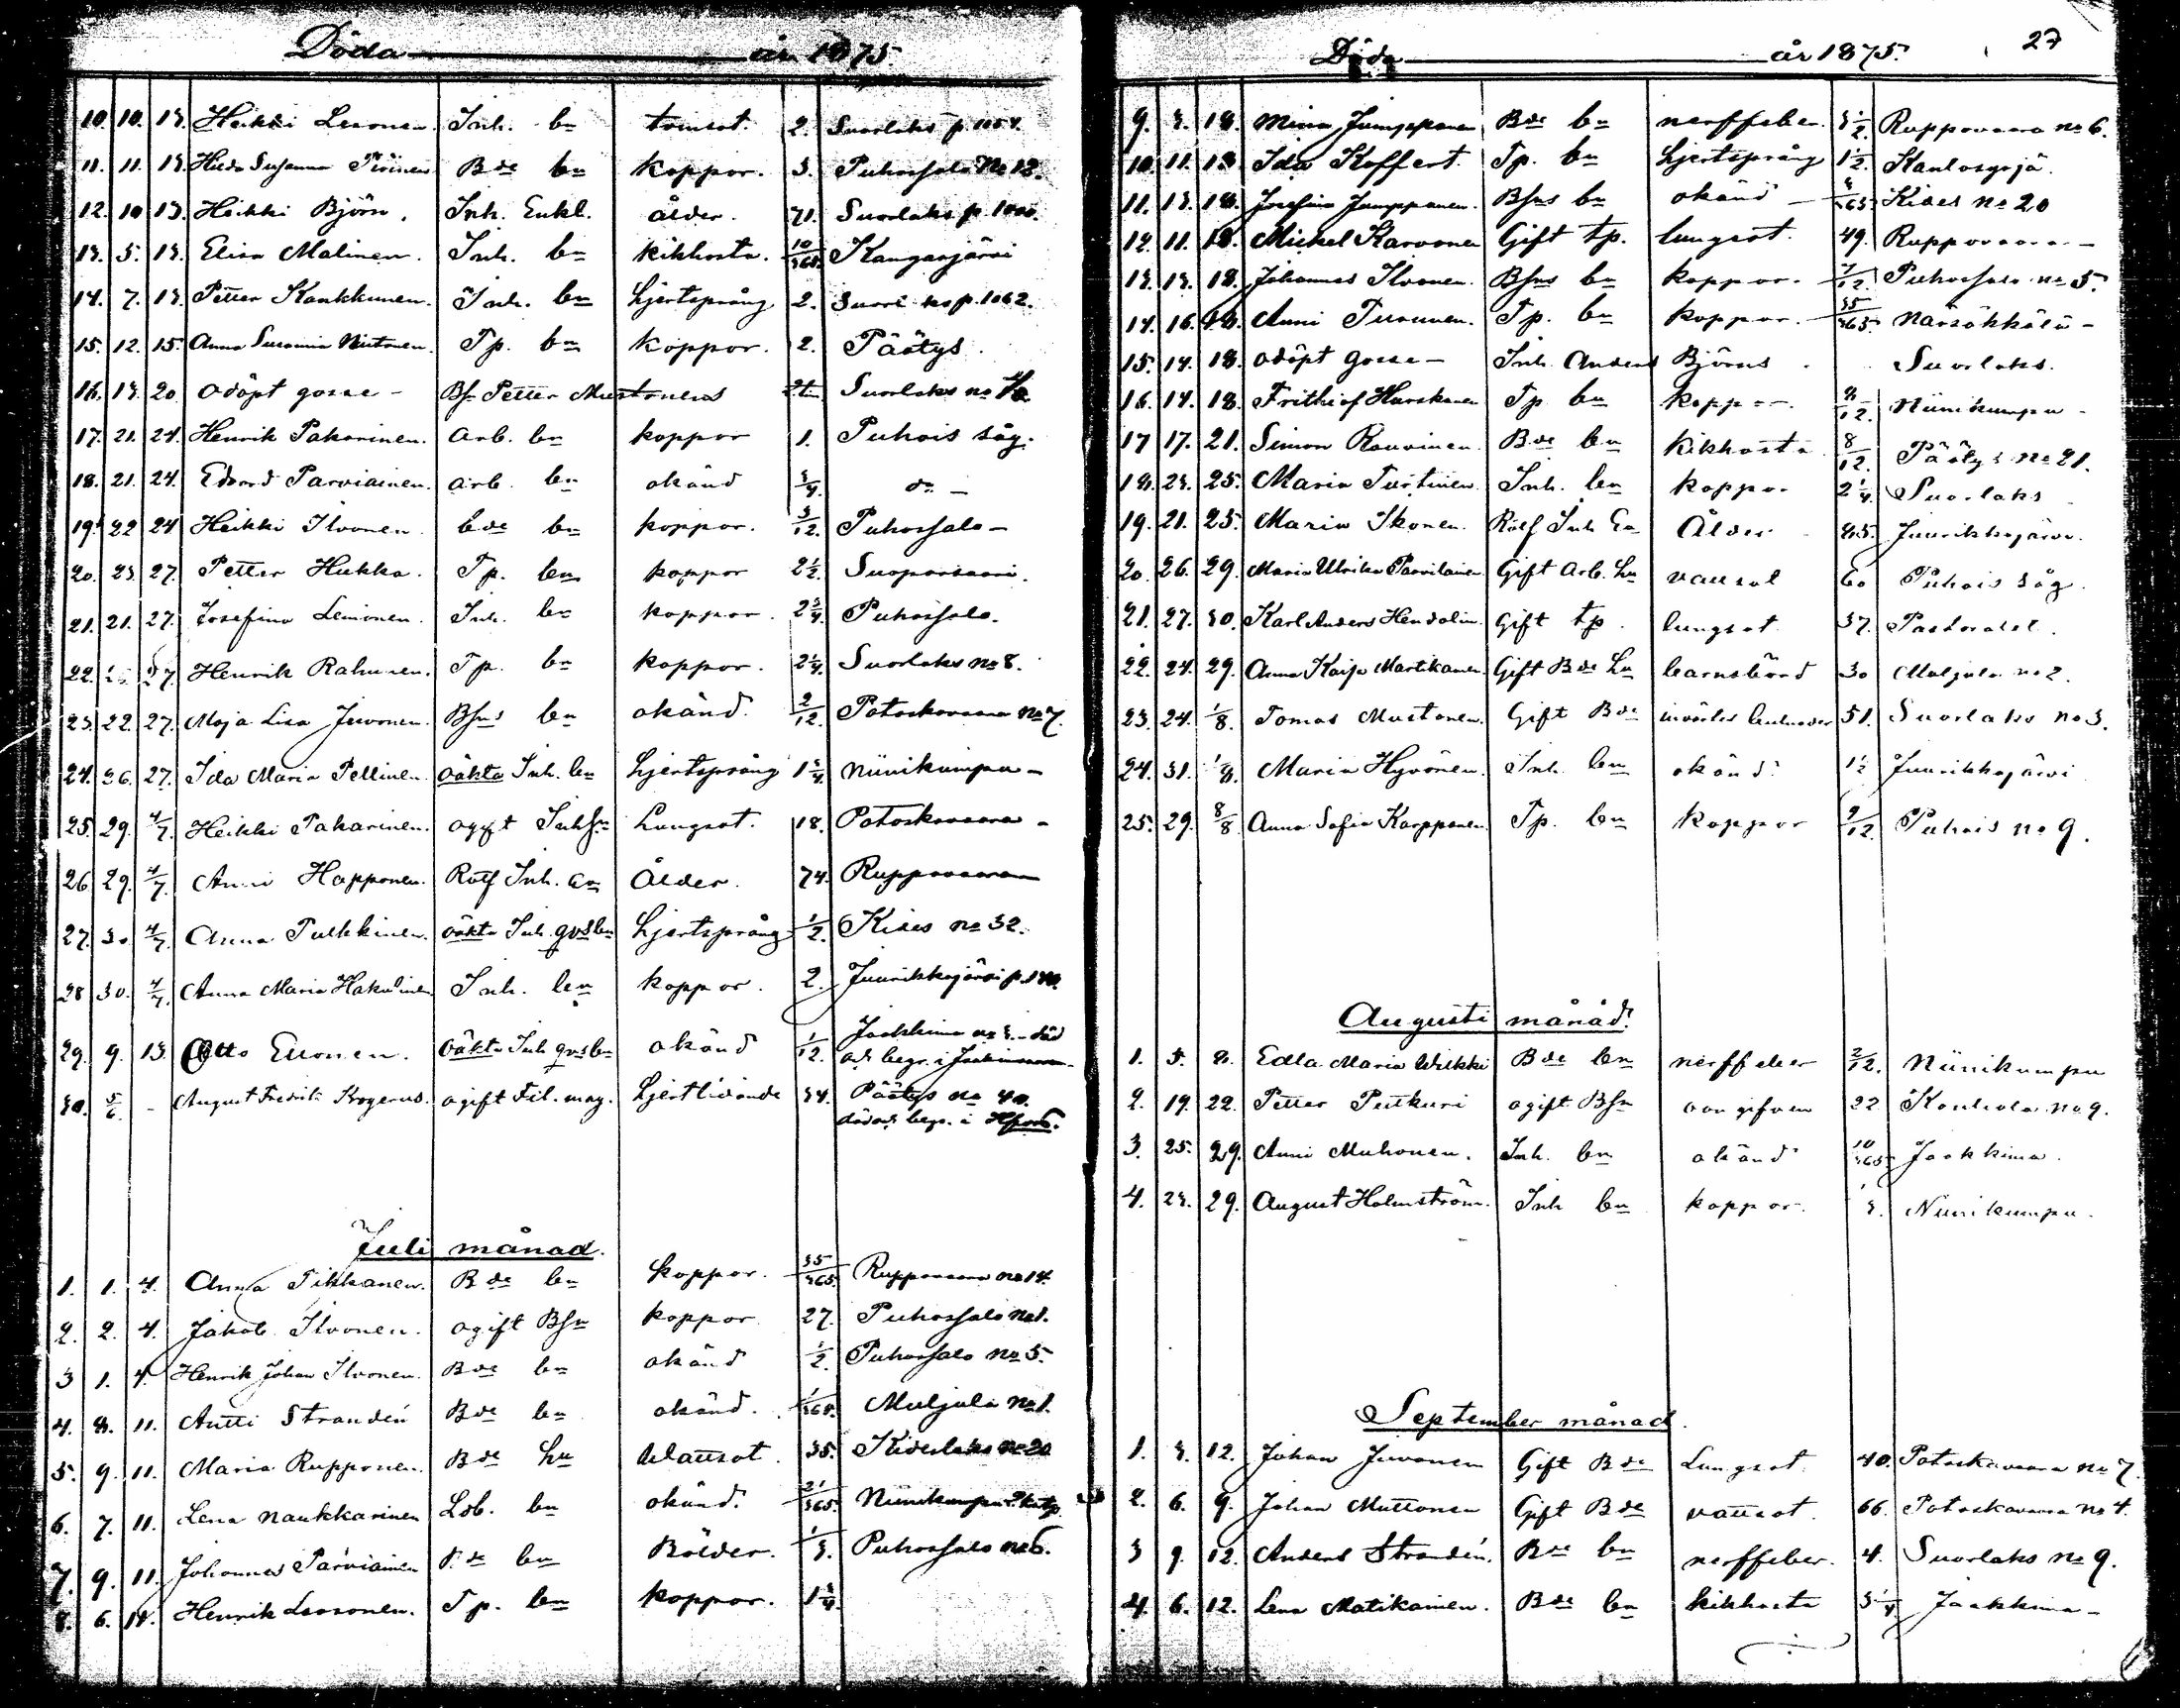 Döda år 1875
10. 10. 13. Heikki Lesonen. Inh. bn 2. Suorlaks p. 1054.
11. 11. 13. Susanna Piroinen Bde bn koppor. 3. Puhossalo No 12.
12. 10 13. Heikki Björn. Inh. Enkl. ålder. 71. Suorlaks p. 1000.
13. 5. 13. Elisa Malinen. Inh. bn kikhosta. 10/365. Kangasjärvi
14. 7. 13. Petter Kaukkunen. Inh. bn hjertsprång 2. p. 1062.
15. 12. 15. Anna Susanna Tp. bn koppor. 2. Päätys.
16. 13. 20. odöpt gosse - Bf. Petter Mustonens Suorlaks no
17. 21. 24. Henrik Pakarinen. arb. bn koppor 1. Puhois såg.
18. 21. 24. Edvard Parviainen. arb. bn okänd 3/4. do -
19. 22 24 Heikki Ilvonen bde bn koppor. 3/12. Puhossalo -
20. 23. 27. Petter Hukka. Tp. bn koppor 2 1/2. Suoparsaari.
21. 21. 27. Josefina Leinonen. Inh. bn koppor. 2 3/4. Puhossalo.
22. 27. Henrik Rahunen. Tp. bn koppor. 2 1/4. Suorlaks no 8.
23. 22. 27. Maja Lisa Juvonen. Bfns bn okänd. 2/12. Potoskavaara No 7.
24. 26. 27. Ida Maria Pellinen. oäkta Inh. bn hjertsprång 1 3/4. Niinikumpu -
25. 29. 4/7. Heikki Pakarinen. ogift Inhfn Lungsot. 18. Potoskavaara -
26 29. 4/7. Anni Happonen. Rotf Inh. En Ålder. 74. Ruppovaara
27. 30 4/7. Anna Pulkkinen. oäkta Inh. qvsbn hjertsprång 1/2. Kides no 32.
28 30. 4/7. Anna Maria Hakulinen Inh. bn koppor. 2. Juurikkajärvi p.
29. 9. 13. Otto Euronen. oäkta Inh qvsbn okänd 1/12. Jaakkima no 3. - död
och begr. i Jaakkima
30. 5/6. - August Fredrik Krogerus. ogift Fil. mag. hjertlidande 34. Päätys no 40.
död och begr. i Hfors.
Juli månad.
1. 1. 4. Anna Tikkanen. Bde bn koppor. 35/365. Ruppovaara no 14.
2. 2. 4. Jakob Ilvonen. ogift Bfn koppor 27. Puhossalo no 1.
3 1. 4. Henrik Johan Ilvonen. Bde bn okänd 1/2. Puhossalo No 5.
4. 8. 11. Antti Strandén Bde bn okänd. 1/365. Muljula No 1.
5. 9. 11. Maria Rupponen. Bde hu Wattsot. 35. Kideslaks no 20
6. 7. 11. Lena Naukkarinen Lsb. bn okänd. 21/365. Niinikumpu
7. 9. 11. Johannes Parviainen Bde bn Bölder. 1/3. Puhossalo no 6.
8. 6. 14. Henrik Tp. bn koppor. 1 3/4.
Döda år 1875. 27
9. 3. 18. Mina Jumppanen Bde bn nerffeber. 3 1/2. Ruppovaara no 6.
10. 11. 18. Ida Koffert. Tp. bn hjertsprång 1 1/2.
11. 13. 18. Josefina Jumppanen. Bfns bn okänd - Kides no 20
12. 11. 18. Mickel Karvonen Gift tp. lungsot. 49. Ruppovaara -
13. 13. 18. Johannes Ilvonen. Bfns bn koppor. 7/12. Puhossalo no 5.
14. 16. 18. Anni Turunen. Tp. bn koppor. 35/365 Närsäkkälä -
15. 14. 18. odöpt gosse - Inh. Anders Björns Suorlaks.
16. 14. 18. Frithiof Hurskanen Tp. bn koppor. Niinikumpu -
17 17. 21. Simon Rouvinen. Bde bn kikhosta 8/12. Päätys no 21.
18. 23. 25. Maria Turtinen. Inh. bn koppor 2 1/4. Suorlaks
19. 21. 25. Maria Ikonen. Rotf Inh En Ålder 85. Juurikkajärvi.
20. 26. 29. Maria Ulrika Parvilainen Gift Arb. hu vattsot 60 Puhois såg.
21. 27. 30. Karl Anders Hendolin. Gift tp. lungsot 37. Pastoratet.
22. 24. 29. Anna Kaisa Martikainen Gift Bde hu barnsbörd 30 Muljula no 2.
23. 24. 1/8. Tomas Mustonen. Gift Bde invärtes 51. Suorlaks no 3.
24. 31. 1/8. Maria Hyvönen. Inh bn okänd. 1 1/2 Juurikkajärvi
25. 29. 8/8 Anna Sofia Karppanen Tp. bn koppor 9/12. Puhois no 9.
Augusti månad.
1. 5. 8. Edla Maria Wirkki Bde bn nerffeber 2/12. Niinikumpu
2. 19. 22. Petter Putkuri ogift Bfn 22 no 9.
3. 25. 29. Anni Muhonen. Inh. bn okänd 10/365 Jaakkima.
4. 23. 29. August Holmström. Inh bn koppor. 3. Niinikumpu.
September månad.
1. 3. 12. Johan Juvonen Gift Bde Lungsot 40. Potoskavaara no 7.
2. 6. 9. Johan Muttonen Gift Bde vattsot. 66. Potoskavaara no 4.
3 9. 12. Anders Strandén. Bde bn nerffeber. 4. Suorlaks no 9.
4. 6. 12. Lena Matikainen. Bde bn kikhosta 3 1/4 Jaakkima -